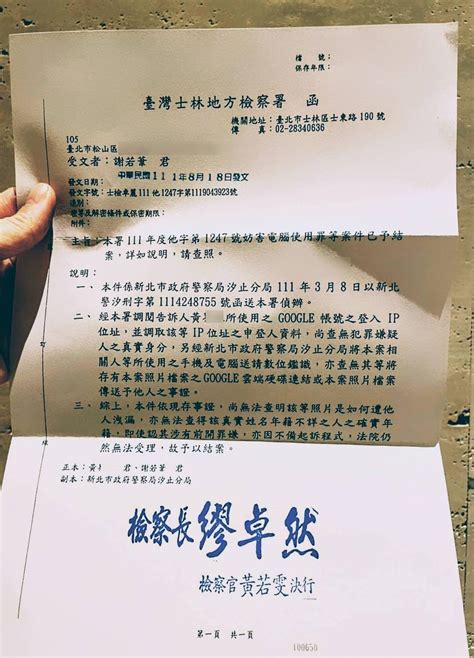 檔　　號：
保存年限：
臺灣士林地方檢察署　函
機關地址：臺北市士林區士東路190號
傳　　真：02-28340636
105
臺北市松山區
受文者：謝若菫　君
發文日期：中華民國111年8月18日發文
發文字號：士檢卓麗111他1247字第1119043923號
速別：
密等及解密條件或保密期限：
附件：
主旨：本署111年度他字第1247號妨害電腦使用罪等案件已予結
案，詳如說明，請查照。
說明：
一、本件係新北市政府警察局汐止分局111年3月8日以新北
警汐刑字第1114248755號函送本署偵辦。
二、經本署調閱告訴人黃 所使用之GOOGLE帳號之登入IP
位址，並調取該等IP位址之申登人資料，尚查無犯罪嫌疑
人之真實身分，另經新北市政府警察局汐止分局將本案相
關人等所使用之手機及電腦送請數位鑑識，亦查無其等將
存有本案照片檔案之GOOGLE雲端硬碟連結或本案照片檔案
傳送予他人之事證。
三、綜上，本件依現存事證，尚無法查明該等照片是如何遭他
人洩漏，亦無法查得該真實姓名年籍不詳之人之確實年
籍，即使認其涉有前開罪嫌，亦因不備起訴程式，法院仍
然無法受理，故予以結案。
正本：黃 君、謝若菫　君
副本：新北市政府警察局汐止分局
檢察長繆卓然
檢察官黃若雯決行
第一頁　共一頁
100650